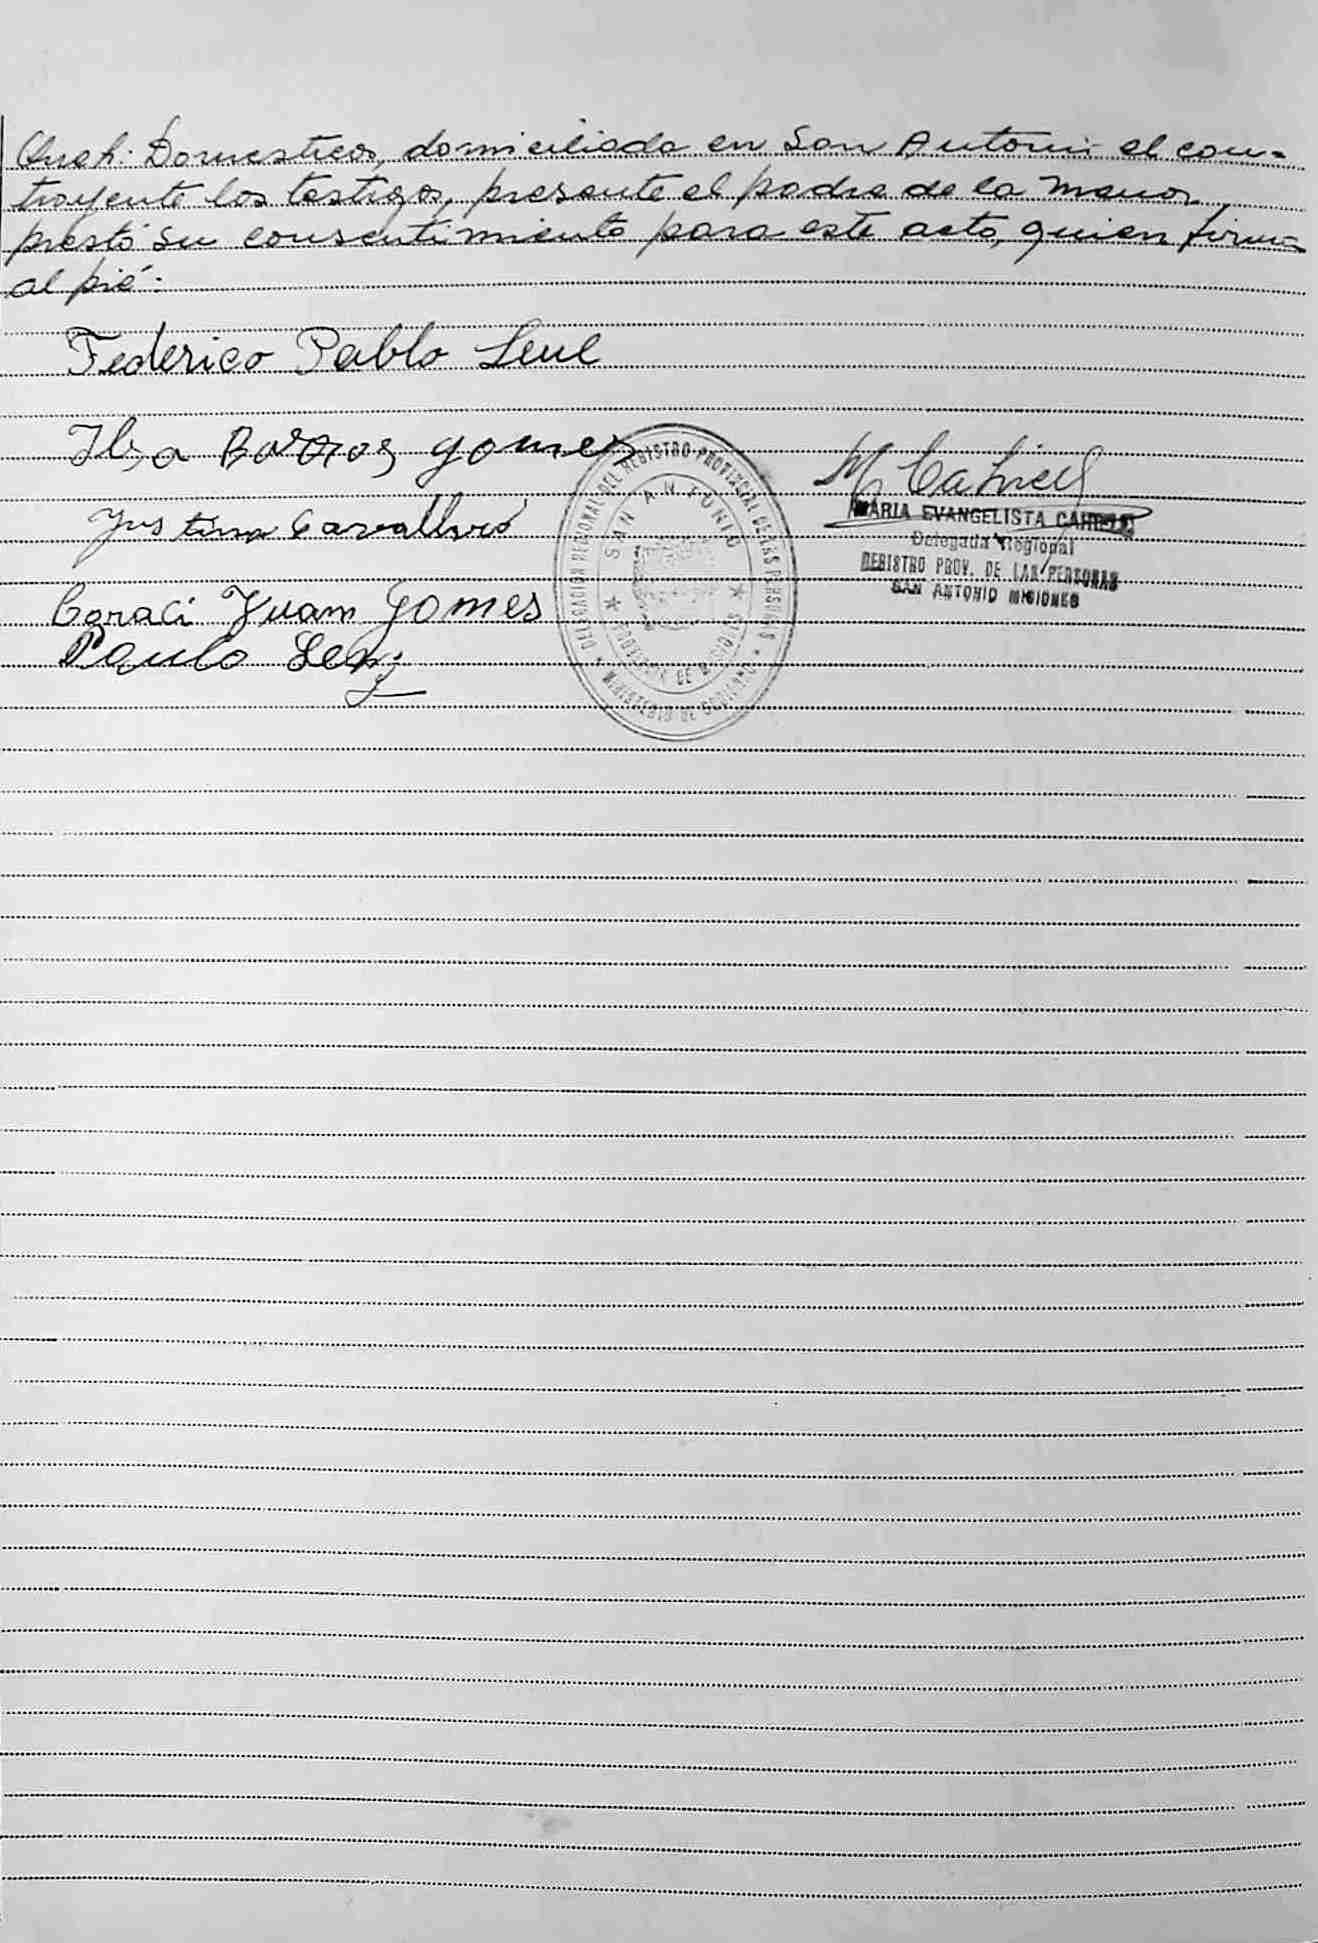 Domesticos, domiciliada en San Antonio el con-
trayente los testigos, presente el padre de la menor,
prestó su consentimiento para este acto, quien firma
al pié:
Federico Pablo
Ilsa Barrios gomes
Justina
Juam Gomes
Paulo
DELEGACION REGIONAL DEL REGISTRO PROVINCIAL DE LAS PERSONAS
SAN ANTONIO
PROVINCIA DE MISIONES
MINISTERIO DE GOBIERNO
MARIA EVANGELISTA
Delegada Regional
REGISTRO PROV. DE LAS PERSONAS
SAN ANTONIO MISIONES